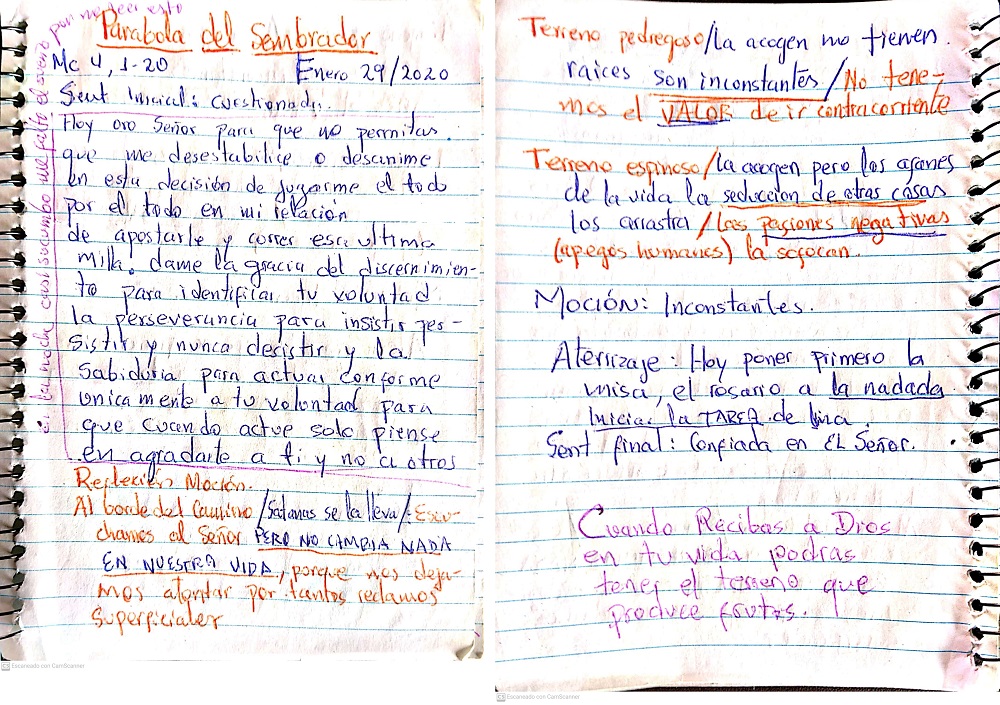 Parabola del Sembrador
Mc 4, 1-20 Enero 29/2020
Sent inicial: cuestionada.
Hoy oro Señor para que no permitas
que me desestabilice o desanime
en esta decisión de jugarme el todo
por el todo en mi relación
de apostarle y correr esa ultima
milla. dame la gracia del discernimien-
to para identificar tu voluntad
la perseverancia para insistir per-
sistir y nunca decistir y la
sabiduria para actuar conforme
unicamente a tu voluntad para
que cuando actue solo piense
en agradarte a ti y no a otros
Reflexión Moción.
Al borde del camino/Satanas se la lleva/: Escu-
chamos al Señor PERO NO CAMBIA NADA
EN NUESTRA VIDA, porque nos deja-
mos atontar por tantos reclamos
superficiales
¡i la noche casi socumbo me falto el enero
por no leer esto
Escaneado con CamScanner
Terreno pedregoso/la acogen no tienen
raices son inconstantes/No tene-
mos el VALOR de ir contracorriente
Terreno espinoso/la acogen pero los afanes
de la vida la seduccion de otras cosas
los arrastra/Las pasiones negativas
(apegos humanos) la sofocan.
Moción: Inconstantes.
Aterrizaje: Hoy poner primero la
misa, el rosario a la nadada
Iniciar la TAREA de lina.
Sent final: Confiada en EL Señor.
Cuando Recibas a Dios
en tu vida podras
tener el terreno que
produce frutos.
Escaneado con CamScanner